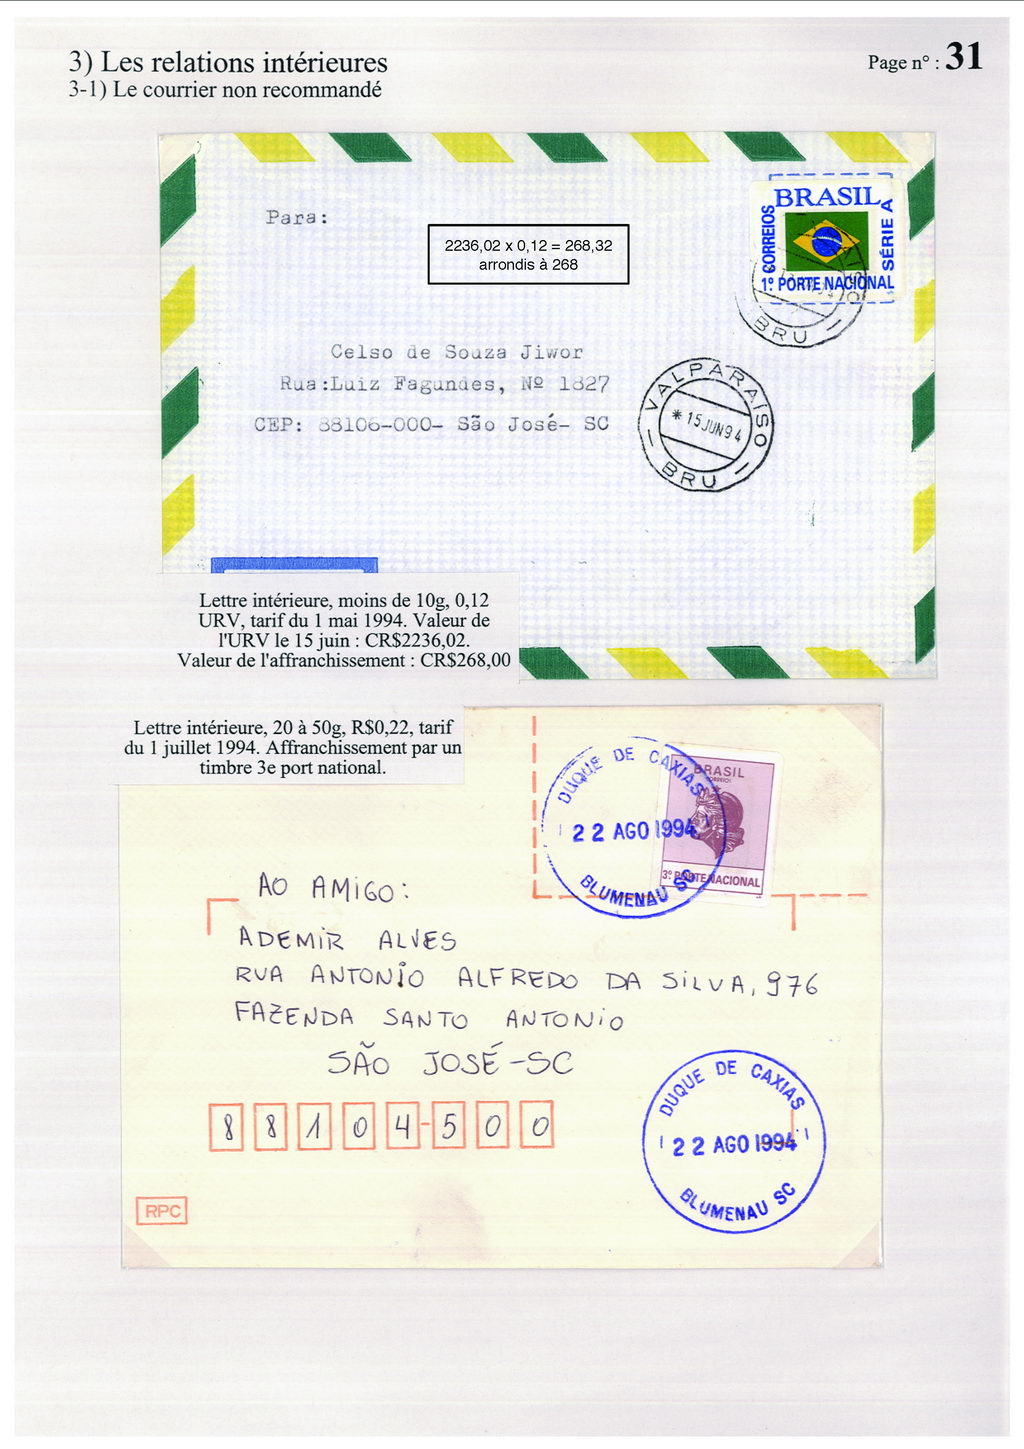 3) Les relations intérieures
Page n° : 31
3-1) Le courrier non recommandé
BRASIL
CORREIOS
SÉRIE A
1º PORTE NACIONAL
BRU
Para:
2236,02 x 0,12 = 268,32
arrondis à 268
Celso de Souza Jiwor
Rua:Luiz Fagundes, Nº 1827
CEP: 88106-000- São José- SC
VALPARAÍSO
* 15 JUN 94
BRU
Lettre intérieure, moins de 10g, 0,12
URV, tarif du 1 mai 1994. Valeur de
l'URV le 15 juin : CR$2236,02.
Valeur de l'affranchissement : CR$268,00
Lettre intérieure, 20 à 50g, R$0,22, tarif
du 1 juillet 1994. Affranchissement par un
timbre 3e port national.
DUQUE DE CAXIAS
22 AGO 1994
BLUMENAU SC
BRASIL
CORREIOS
3º PORTE NACIONAL
AO AMIGO:
ADEMIR ALVES
RUA ANTONIO ALFREDO DA SILVA, 976
FAZENDA SANTO ANTONIO
SÃO JOSÉ-SC
88104-500
DUQUE DE CAXIAS
22 AGO 1994
BLUMENAU SC
RPC